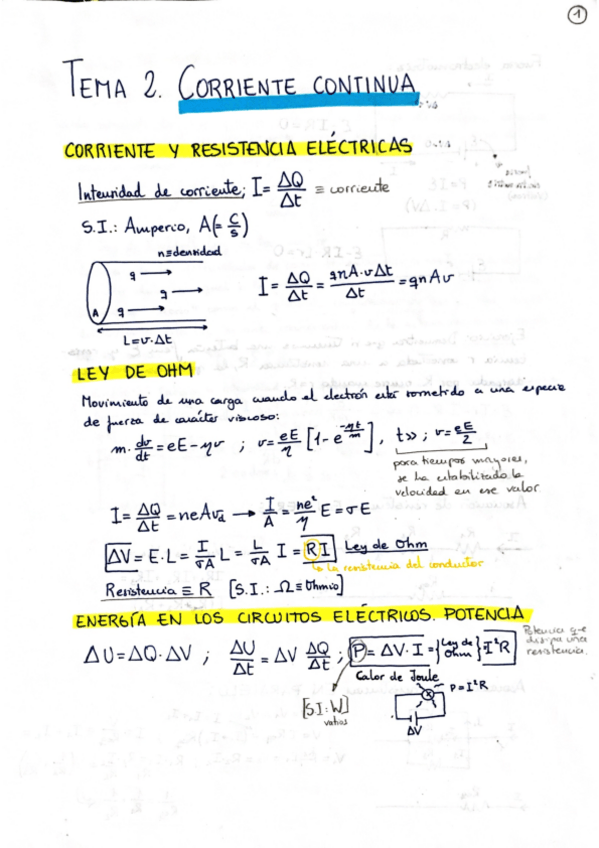 1
TEMA 2. CORRIENTE CONTINUA
CORRIENTE Y RESISTENCIA ELÉCTRICAS
Intensidad de corriente; I = ΔQ/Δt ≡ corriente
S.I.: Amperio, A (= C/s)
n≡densidad
q
q
A q
L=v·Δt
I = ΔQ/Δt = qnA·vΔt/Δt = qnAv
LEY DE OHM
Movimiento de una carga cuando el electrón está sometido a una especie
de fuerza de carácter viscoso:
m·dv/dt = eE-ηv ; v = eE/η [1-e^(-ηt/m)], t>> ; v = eE/2
para tiempos mayores,
se ha estabilizado la
velocidad en ese valor.
I = ΔQ/Δt = neAvd → I/A = ne²/η E = σE
ΔV = E·L = I/σA L = L/σA I = RI Ley de Ohm
↳ La resistencia del conductor
Resistencia ≡ R [S.I.: Ω ≡ Ohmio]
ENERGÍA EN LOS CIRCUITOS ELÉCTRICOS. POTENCIA
ΔU = ΔQ·ΔV ; ΔU/Δt = ΔV ΔQ/Δt ; P = ΔV·I = {Ley de Ohm} = I²R
Potencia que
disipa una
resistencia.
Calor de Joule
[S.I: W]
vatios
P=I²R
ΔV